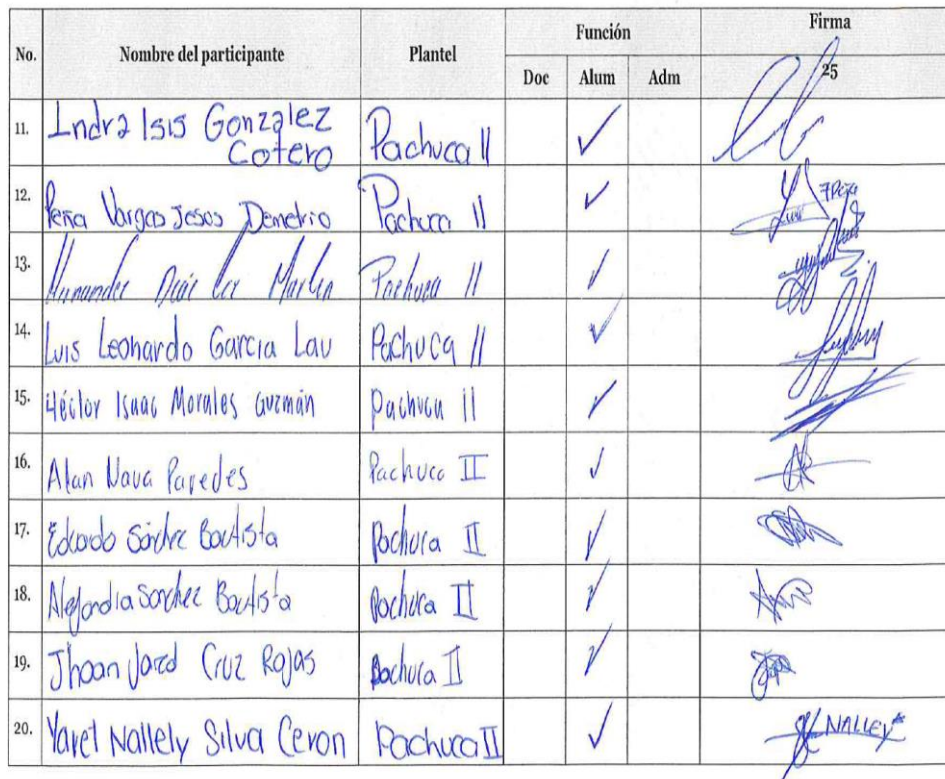 No. Nombre del participante Plantel Función Firma
Doc Alum Adm 25
11. Indra Isis Gonzalez Cotero Pachuca II ✓
12. Peña Vargas Jesos Demetrio Pachuca II ✓
13. Martin Pachuca II ✓
14. Luis Leonardo Garcia Lau Pachuca II ✓
15. Héctor Isaac Morales Guzmán Pachuca II ✓
16. Alan Nava Paredes Pachuca II ✓
17. Bautista Pachuca II ✓
18. Sanchez Bautista Pachuca II ✓
19. Jhoan Jared Cruz Rojas Pachuca II ✓
20. Yaret Nallely Silva Ceron Pachuca II ✓ NALLEY*